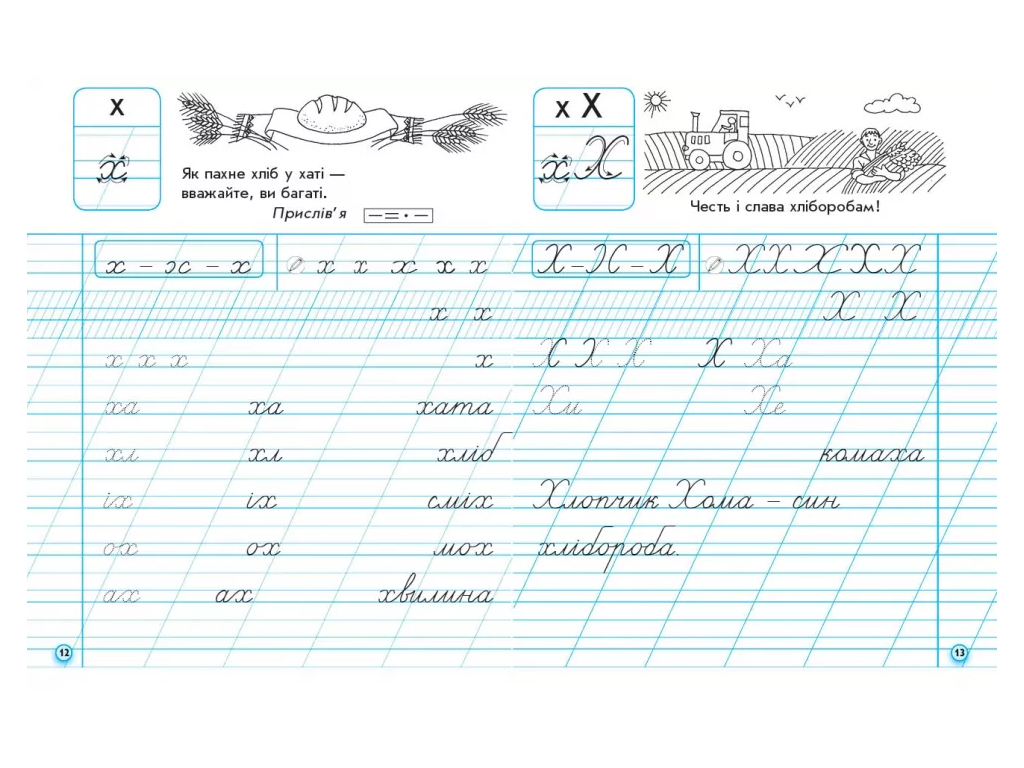 х
х
Як пахне хліб у хаті —
вважайте, ви багаті.
Прислів’я
х – х – х х х х х х
х х
х х х х
ха ха хата
хл хл хліб
іх іх сміх
ох ох мох
ах ах хвилина
12
х Х
х Х
Честь і слава хліборобам!
Х – Х – Х Х Х Х Х Х
Х Х
Х Х Х Х Ха
Хи Хе
комаха
Хлопчик Хома – син
хлібороба.
13